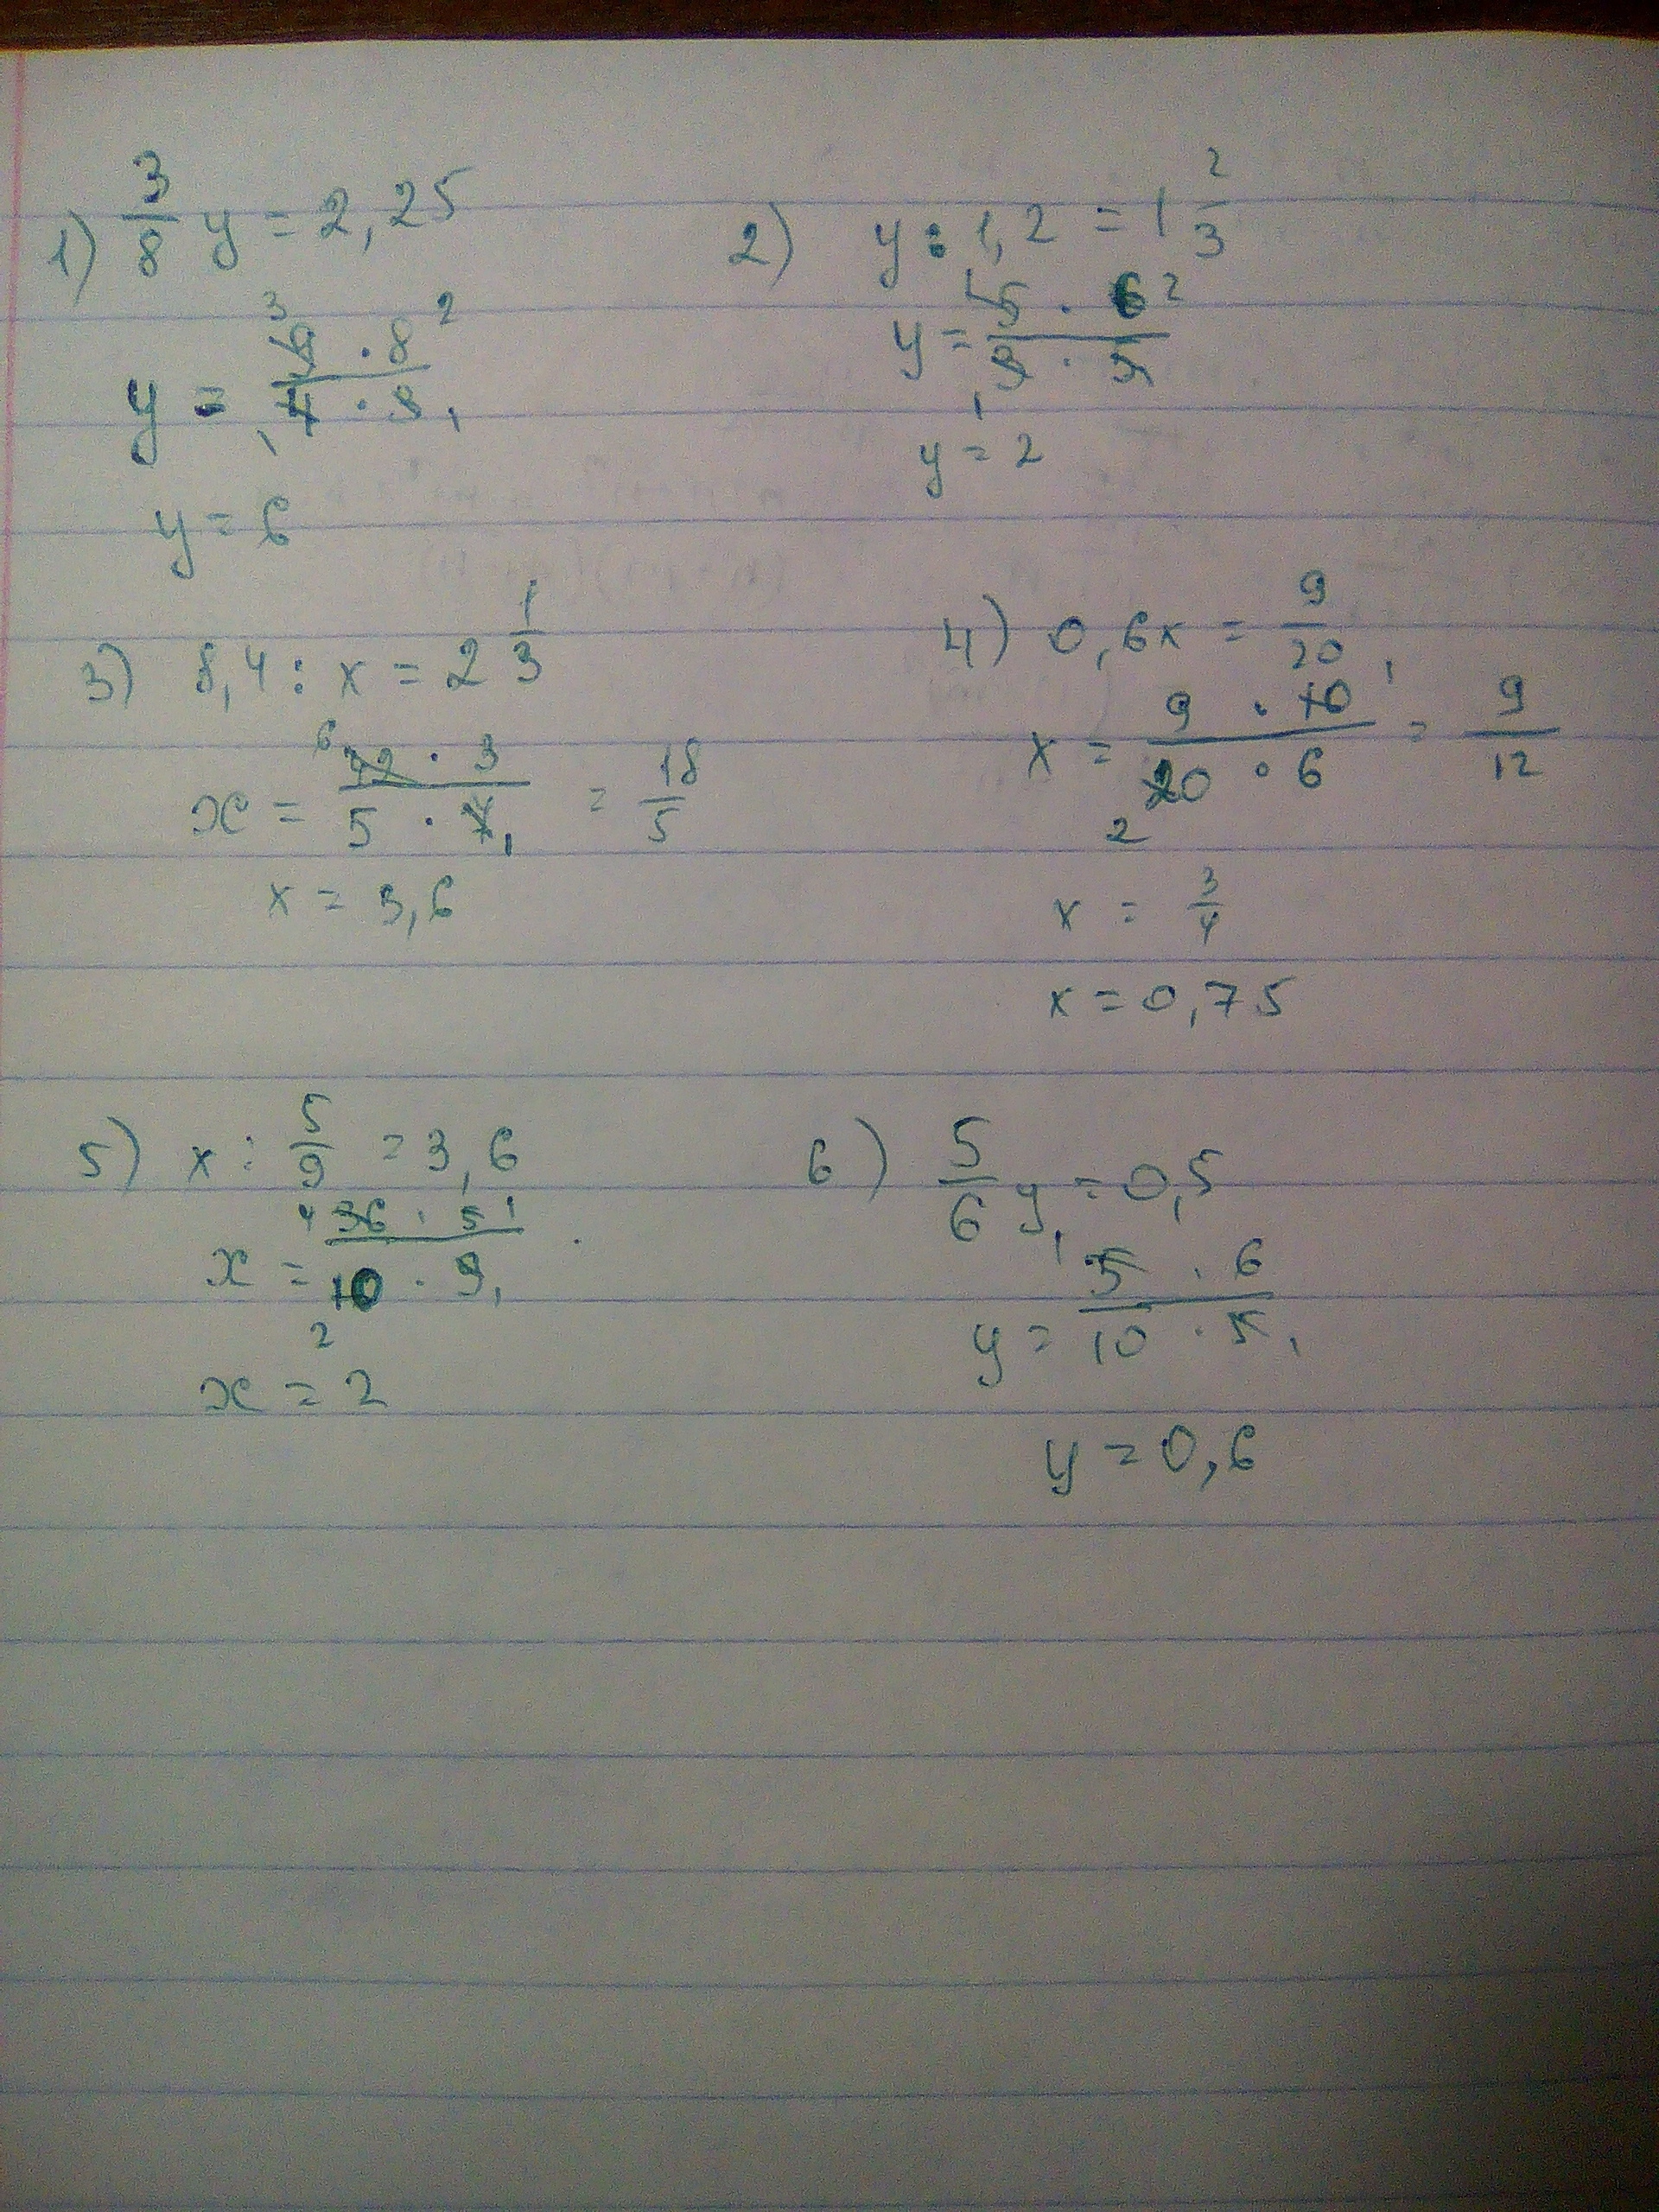 1) 3/8 y = 2,25
y = 9 · 8 / 4 · 3
3 2 1 1
y = 6
2) y : 1,2 = 1 2/3
y = 5 · 6 / 3 · 5
1 2 1
y = 2
3) 8,4 : x = 2 1/3
x = 42 · 3 / 5 · 7 = 18/5
6 1
x = 3,6
4) 0,6x = 9/20
x = 9 · 10 / 20 · 6 = 9/12
1 2
x = 3/4
x = 0,75
5) x : 5/9 = 3,6
x = 36 · 5 / 10 · 9
4 1 2 1
x = 2
6) 5/6 y = 0,5
y = 5 · 6 / 10 · 5
1 1
y = 0,6